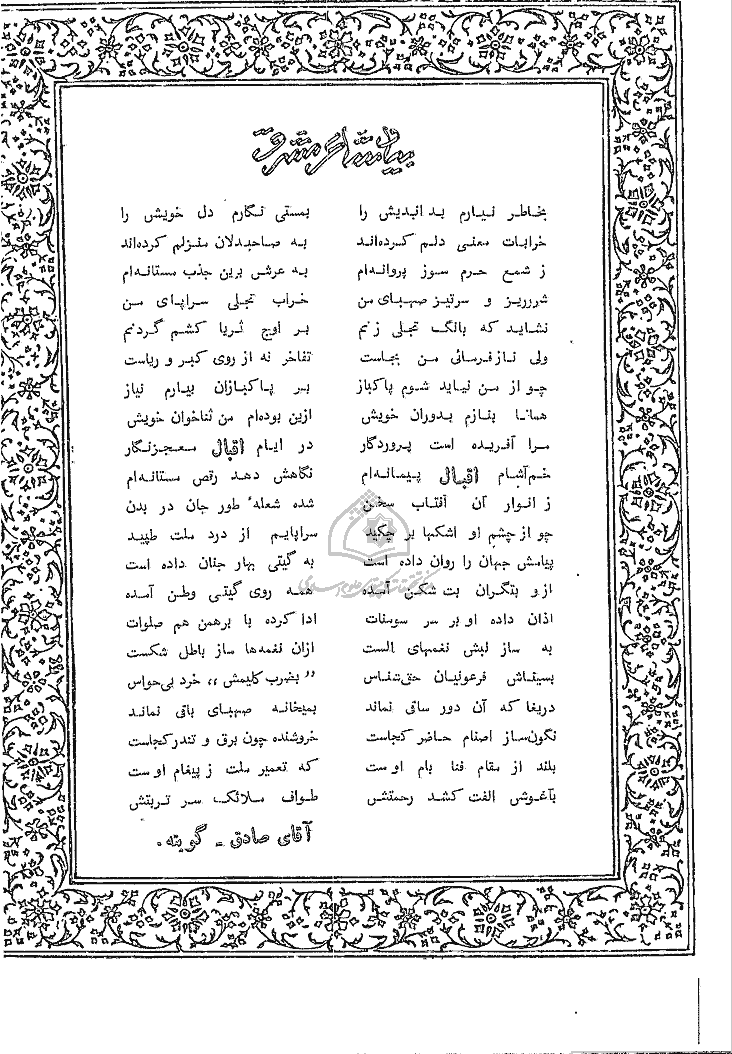 بیاد شاعر مشرق
بخاطر نیارم بد اندیش را بمستی نگارم دل خویش را
خرابات معنی دلم کرده‌اند به صاحبدلان منزلم کرده‌اند
ز شمع حرم سوز پروانه‌ام به عرش برین جذب مستانه‌ام
شررریز و سرتیز صهبای من خراب تجلی سراپای من
نشاید که بانگ تجلی زنم بر اوج ثریا کشم گردنم
ولی ناز فرسائی من بجاست تفاخر نه از روی کبر و ریاست
چو از من نیاید شوم پاکباز بر پاکبازان بیارم نیاز
همانا بنازم بدوران خویش ازین بوده‌ام من ثناخوان خویش
مرا آفریده است پروردگار در ایام اقبال معجزنگار
خم‌آشام اقبال پیمانه‌ام نگاهش دهد رقص مستانه‌ام
ز انوار آن آفتاب سخن شده شعلهٔ طور جان در بدن
چو از چشم او اشکها بر چکید سراپایم از درد ملت طپید
پیامش جهان را روان داده است به گیتی بهار جنان داده است
ازو بتگران بت شکن آمده همه روی گیتی وطن آمده
اذان داده او بر سر سومنات ادا کرده با برهمن هم صلوات
به ساز لبش نغمهای الست ازان نغمه‌ها ساز باطل شکست
بسیناش فرعونیان حق‌شناس ”بضرب کلیمش“ خرد بی‌حواس
دریغا که آن دور ساقی نماند بمیخانه صهبای باقی نماند
نگون‌ساز اصنام حاضر کجاست خروشنده چون برق و تندر کجاست
بلند از مقام فنا بام اوست که تعمیر ملت ز پیغام اوست
بآغوش الفت کشد رحمتش طواف ملائک سر تربتش
آقای صادق - گویته.